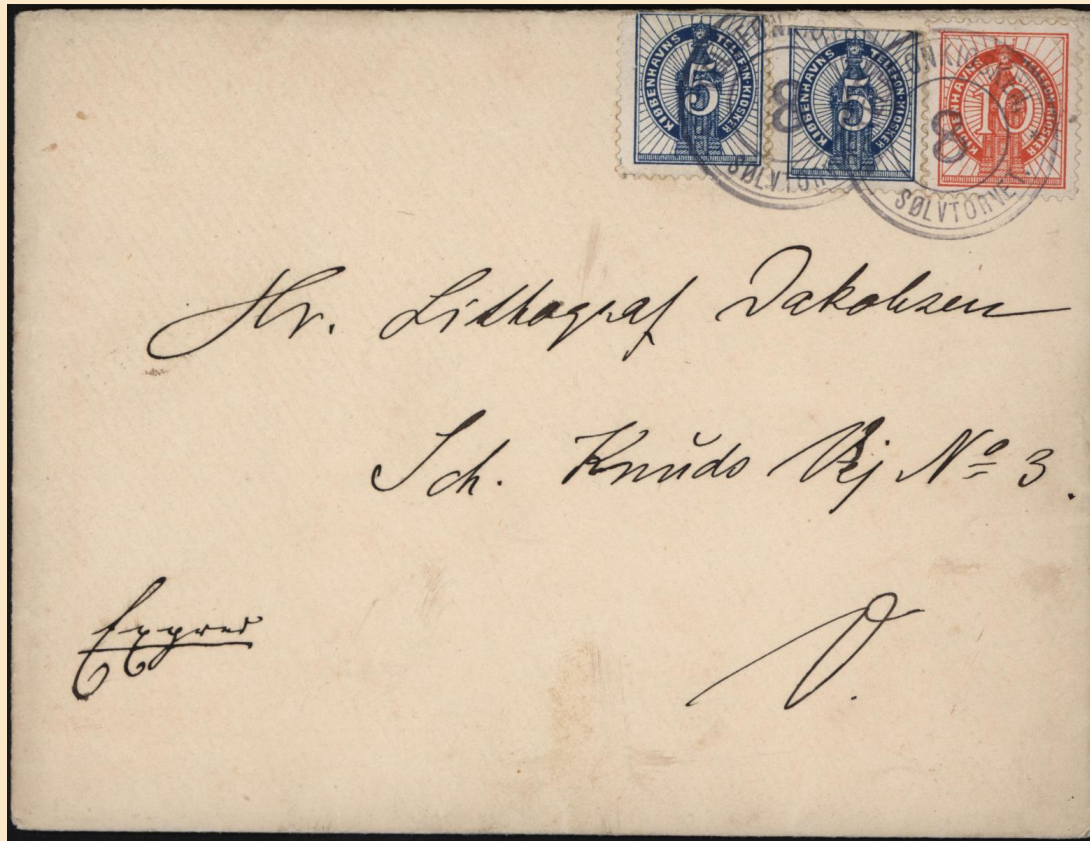 KJØBENHAVNS TELEFON·KIOSKER
5
KJØBENHAVNS TELEFON·KIOSKER
5
KJØBENHAVNS TELEFON·KIOSKER
10
8
SØLVTORVET
8
SØLVTORVET
Hr. Lithograf Jakobsen
Sch. Knuds Vej Nº 3.
Expres
V.